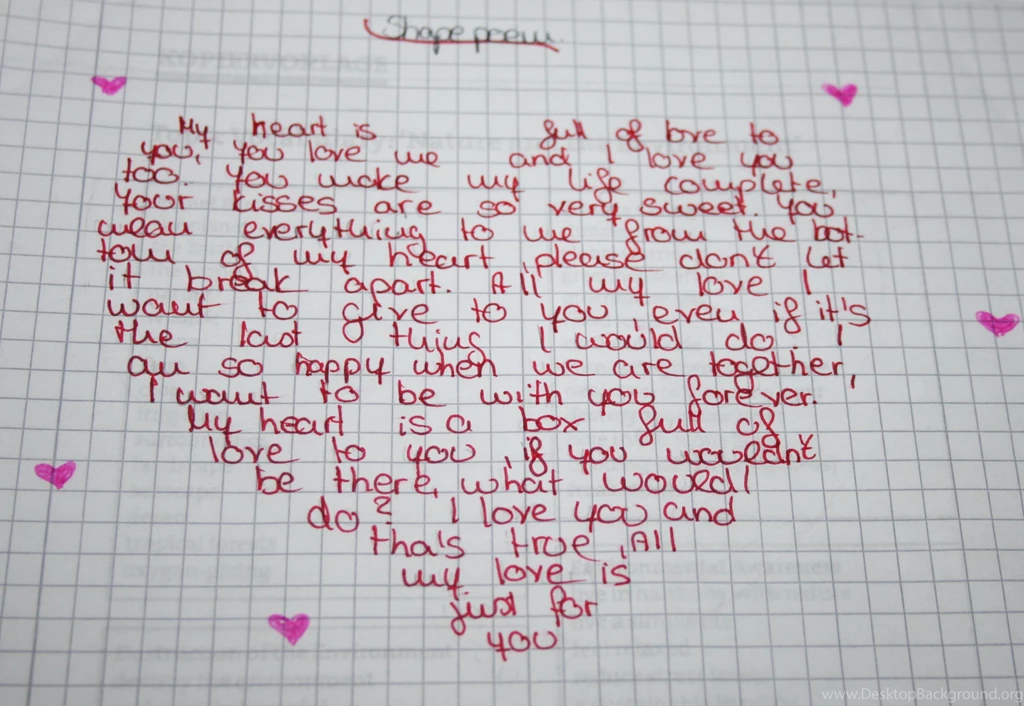 Shape poem
My heart is full of love to
you, you love me and I love you
too. You make my life complete,
Your kisses are so very sweet. You
mean everything to me from the bot-
tom of my heart, please don't let
it break apart. All my love I
want to give to you, even if it's
the last thing I would do. I
am so happy when we are together,
I want to be with you forever.
My heart is a box full of
love to you, if you wouldn't
be there, what would I
do? I love you and
tha's true, All
my love is
just for
you
KOPIERVORLAGE
tropical forests
Environmental Awareness
live in harmony with nature
Destruction of the Environment
www.DesktopBackground.org